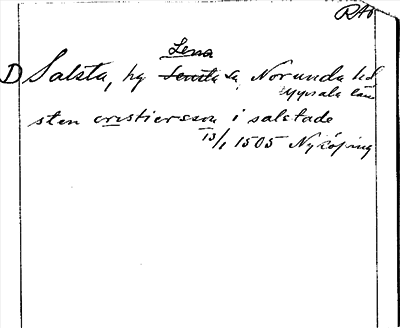 RAÖ
Lena
D Salsta, hg Lenita sn, Norunda hd
Uppsala län
sten cristiersson i salstade
13/1 1505 Nyköping